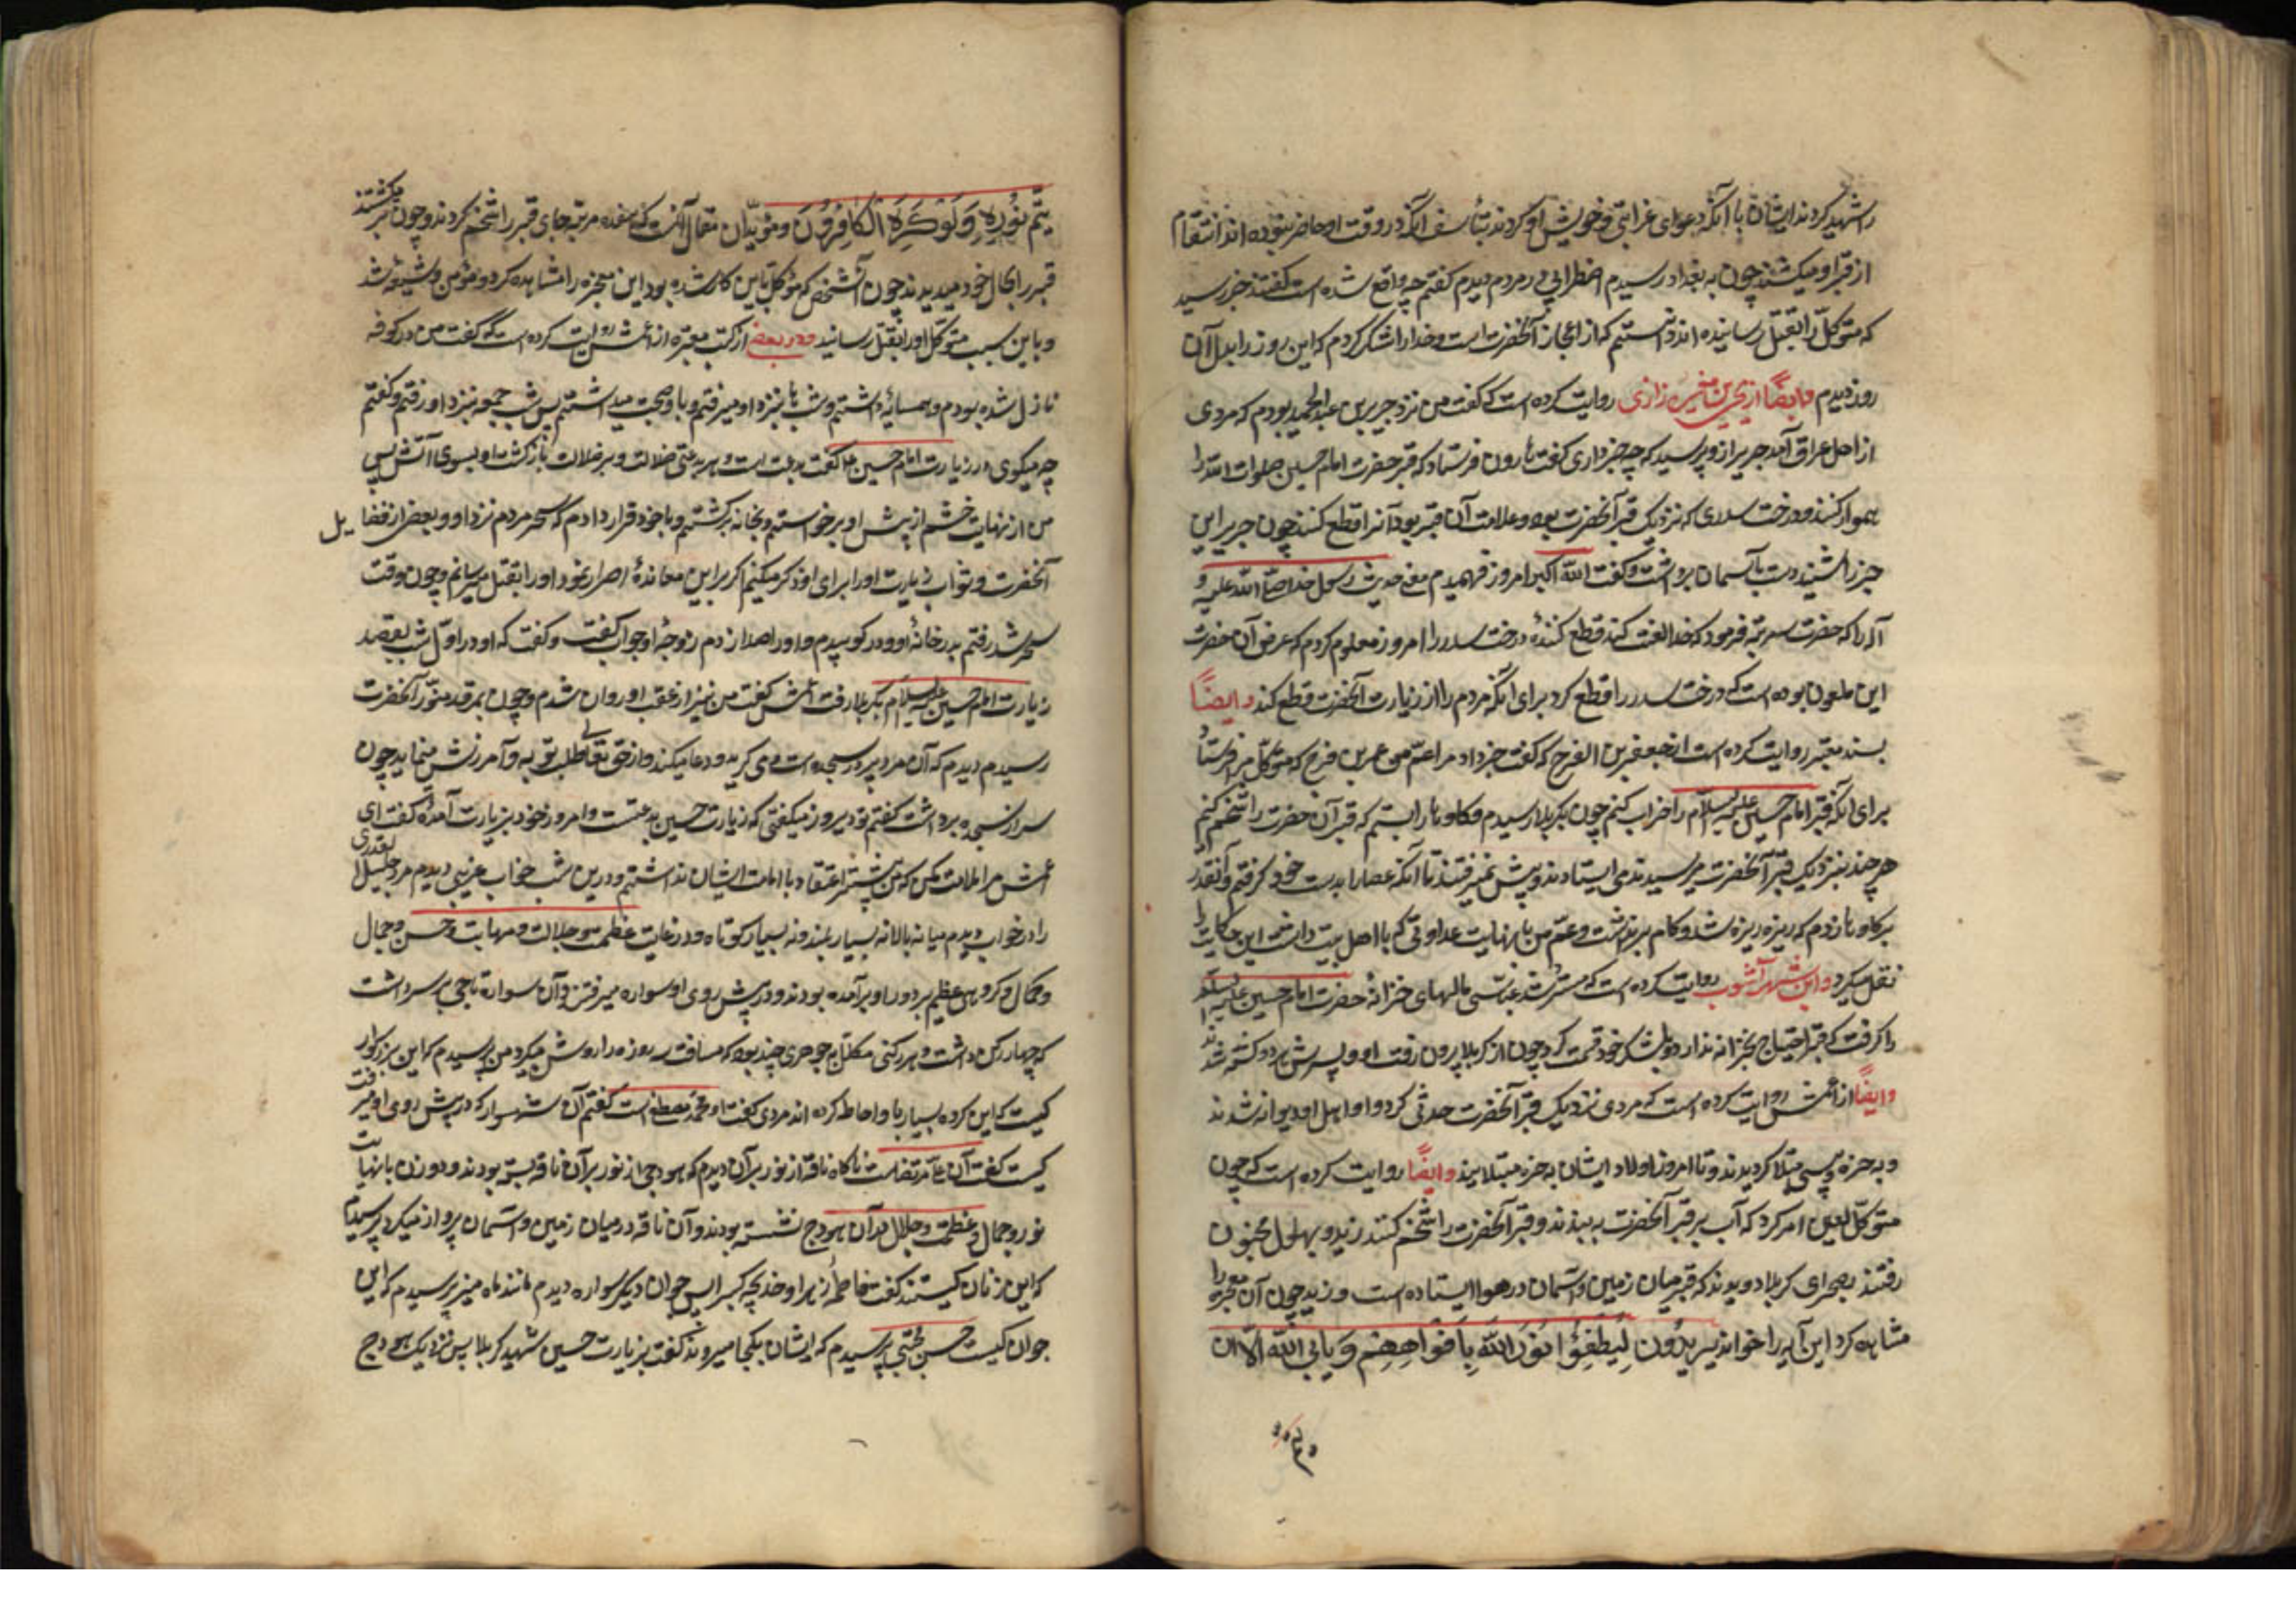 را شهید کردند ایشان با آنکه دعوای غرابتی و خویش او کردند بتأسف آنکه در وقت او حاضر نبوده اند انتقام
از قبر او میکشند چون به بغداد رسیدم اضطرابی در مردم دیدم کفتم چه واقع شده است کفتند خبر رسید
که متوکل را بقتل رسانیده اند دانستم که از اعجاز آنحضرت است و خدا را شکر کردم که این روز را بدل آن
روز دیدم و ایضًا از یحیی بن مغیره رازی روایت کرده است که کفت من نزد جریر بن عبد الحمید بودم که مردی
از اهل عراق آمد جریر از و پرسید که چه خبر داری کفت هارون فرستاد که قبر حضرت امام حسین صلوات الله را
هموار کنند و درخت سدری که نزدیک قبر آنحضرت بود و علامت آن قبر بود آنرا قطع کنند چون جریر این
خبر را شنید دست بآسمان برداشت و کفت الله اکبر امروز فهمیدم معنی حدیث رسول خدا صلی الله علیه و
آله را که حضرت سه مرتبه فرمود که خدا لعنت کند قطع کنندهٔ درخت سدر را امروز معلوم کردم که غرض آن حضرت
این ملعون بوده است که درخت سدر را قطع کرد برای آنکه مردم را از زیارت آنحضرت قطع کند و ایضًا
بسند معتبر روایت کرده است از جعفر بن الفرج که کفت خبر داد مرا عم من عمر بن فرج که متوکل مرا فرستاد
برای آنکه قبر امام حسین علیه السلام را خراب کنم چون بکربلا رسیدم و کاوها را بستم که قبر آن حضرت را شخم کنم
هر چند بنزدیک قبر آنحضرت میرسیدند می ایستادند و پیش نمیرفتند تا آنکه عصا را بدست خود کرفتم و آنقدر
بر کاوها زدم که ریزه ریزه شد و کام بر نداشت و عم من با نهایت عداوتی که با اهل بیت داشت این حکایت را
نقل میکرد و ابن شهر آشوب روایت کرده است که مسترشد عباسی مالهای خزانهٔ حضرت امام حسین علیه السلم
را کرفت که قبر احتیاج بخزانه ندارد و بلشکر خود قسمت کرد چون از کربلا بیرون رفت او و پسرش هر دو کشته شدند
و ایضًا از اعمش روایت کرده است که مردی نزدیک قبر آنحضرت حدثی کرد و او و اهل او دیوانه شدند
و به خزه و پیسی مبتلا کردیدند و تا امروز اولاد ایشان به خزه مبتلایند و ایضًا روایت کرده است که چون
متوکل لعین امر کرد که آب بر قبر آنحضرت به بندند و قبر آنحضرت را شخم کنند زید و بهلول مجنون
رفتند بصحرای کربلا دیدند که قبر میان زمین و آسمان در هوا ایستاده است و زید چون آن معجزه را
مشاهده کرد این آیه را خواند یُریدُونَ لِیُطْفِؤُا نُورَ اللَّهِ بِاَفْوَاهِهِمْ وَ یَابی اللَّه اِلَّا اَن
یتم نُورِهِ وَلَوْ کَرِهَ الْکَافِرُونَ و مؤیّد آن مقال آنست که هفده مرتبه جای قبر را شخم کردند و چون بر میکشتند
قبر را بحال خود میدیدند چون آن شخص که مؤکل باین کار شده بود این معجزه را مشاهده کرد و مؤمن و شیعه شد
و باین سبب متوکل او را بقتل رسانید و در بعضی از کتب معتبره از اعمش روایت کرده است که کفت من در کوفه
نازل شده بودم و همسایهٔ داشتم و شبها بنزد او میرفتم و با او صحبت میداشتم پس شب جمعه بنزد او رفتم و کفتم
چه میکوی در زیارت امام حسین ع کفت بدعت است و هر بدعتی ضلالت و هر ضلالت بازکشت او بسوی آتش پس
من از نهایت خشم از پیش او برخواستم و بخانه برکشتم و با خود قرار دادم که سحر مردم نزد او و بعضی از فضایل
آنحضرت و ثواب زیارت او را برای او ذکر میکنم اکر بر این معاندهٔ اصرار نمود او را بقتل میرسانم و چون وقت
سحر شد رفتم بدر خانهٔ او و در کوبیدم و او را صدا زدم زوجهٔ او جواب کفت و کفت که او در اول شب بقصد
زیارت امام حسین علیه السلام بکربلا رفت اعمش کفت من نیز از عقب او روان شدم و چون بمرقد منوّر آنحضرت
رسیدم دیدم که آن مرد پیر در سجده است و می کرید و دعا میکند و از حق تعالی طلب توبه و آمرزش مینماید چون
سر از سجده برداشت کفتم تو دیروز میکفتی که زیارت حسین بدعتست و امروز خود بزیارت آمدهٔ کفت ای
اعمش مرا ملامت مکن که من پیشتر اعتقاد با امامت ایشان نداشتم و درین شب خواب غریبی دیدم مرد جلیل القدری
را در خواب دیدم میانه بالا نه بسیار بلند و نه بسیار کوتاه و در غایت عظمت و جلالت و مهابت و حسن و جمال
و کمال و کروهی عظیم بر دور او برآمده بودند و در پیش روی او سواره میرفت و آن سواره تاجی بر سر داشت
که چهار رکن داشت و هر رکنی مکلل بجوهری چند بود که مسافت سه روزه راه روشن میکرد من پرسیدم که این بزرکوار
کیست که این کرده بسیار باو احاطه کرده اند مردی کفت او محمد مصطفی است کفتم آن شهسوار که در پیش روی او میرفت
کیست کفت آن علی مرتضاست ناکاه ناقهٔ از نور بر آن دیدم که هودجی از نور بر آن ناقه بسته بودند و دو زن با نهایت
نور و جمال و عظمت و جلال در آن هودج نشسته بودند و آن ناقه در میان زمین و آسمان پرواز میکرد پرسیدم
که این زنان کیستند کفت فاطمهٔ زهرا و خدیجه کبرا پس جوان دیکر سواره دیدم مانند ماه منیر پرسیدم که این
جوان کیست حسن مجتبی پرسیدم که ایشان بکجا میروند کفت بزیارت حسین شهید کربلا پس نزدیک هودج